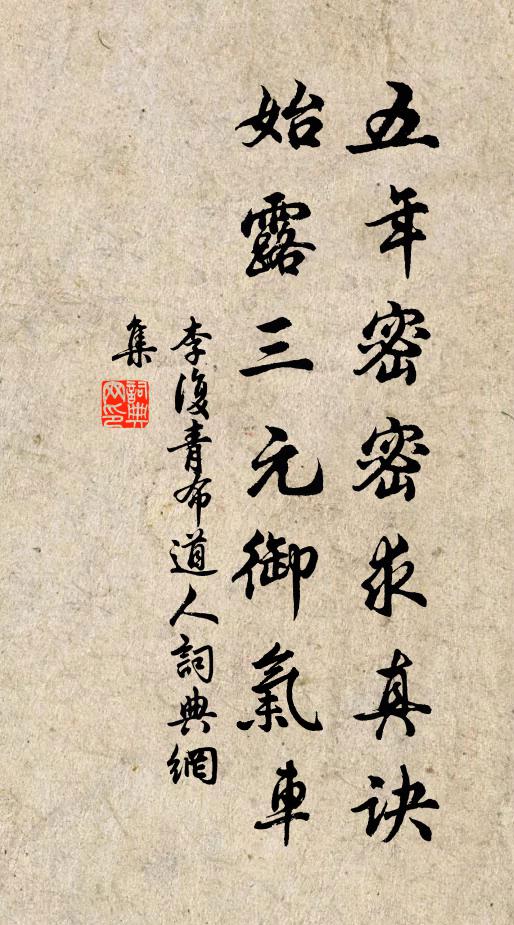 五年密密求真诀
始露三元御氣車
李復青布道人詞典網
集
詞典網印